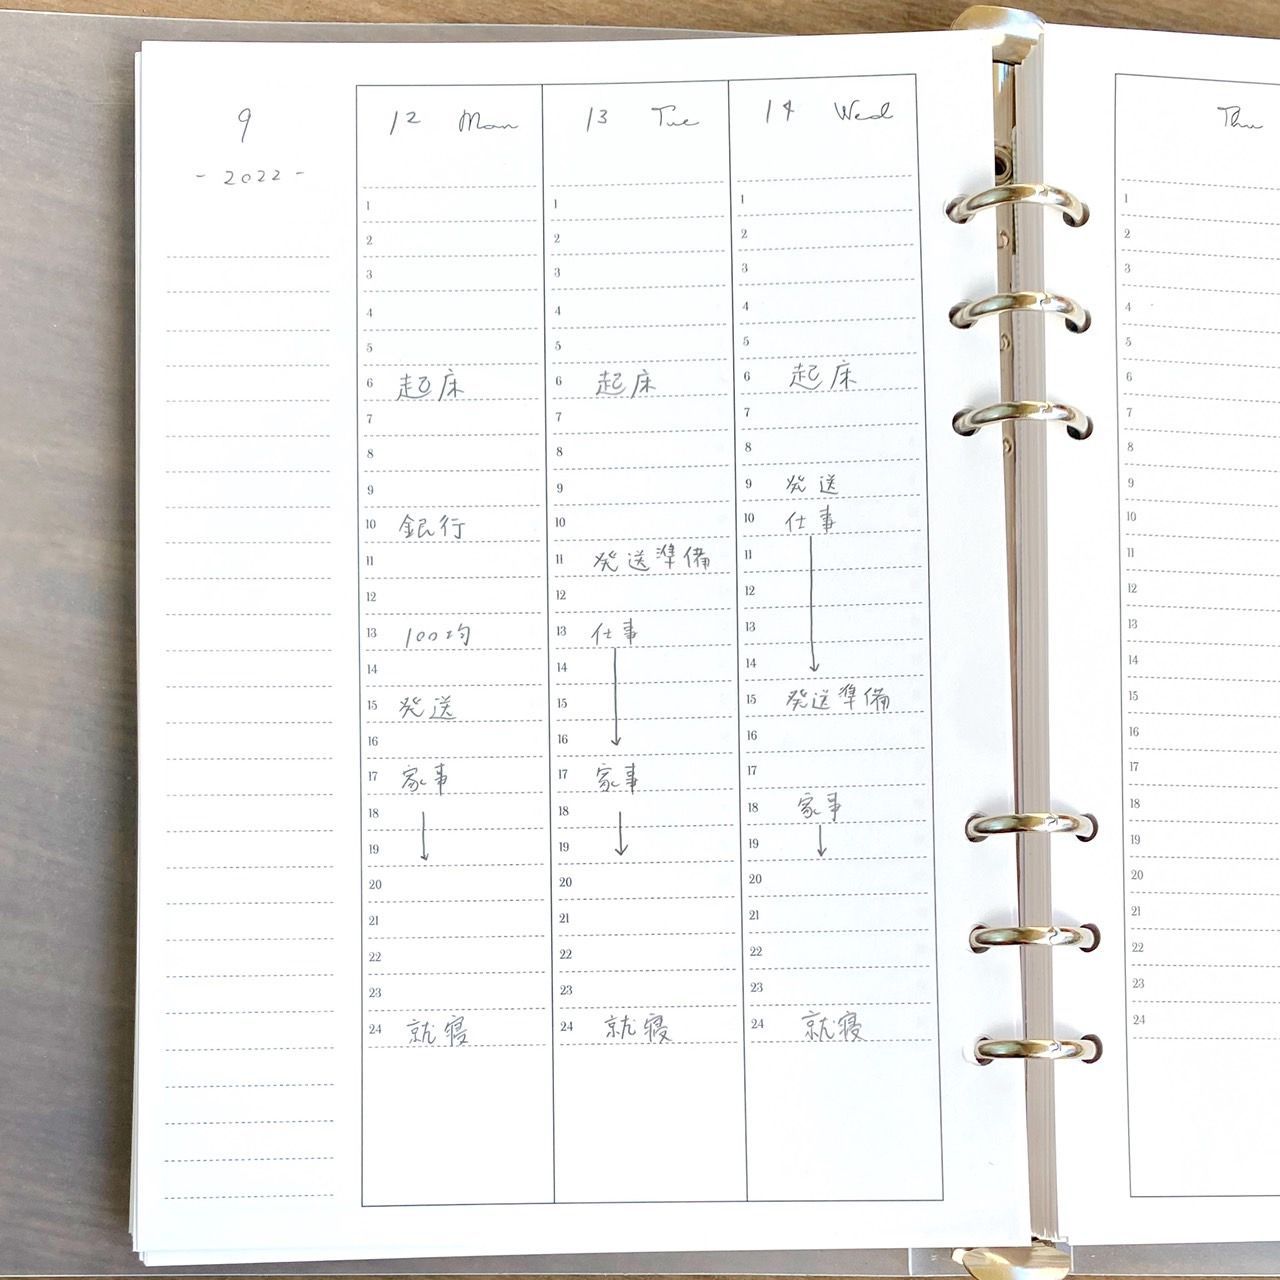 9
- 2022 -
12 Mon
1
2
3
4
5
6 起床
7
8
9
10 銀行
11
12
13 100均
14
15 発送
16
17 家事
18
19
20
21
22
23
24 就寝
13 Tue
1
2
3
4
5
6 起床
7
8
9
10
11 発送準備
12
13 仕事
14
15
16
17 家事
18
19
20
21
22
23
24 就寝
14 Wed
1
2
3
4
5
6 起床
7
8
9 発送
10 仕事
11
12
13
14
15 発送準備
16
17
18 家事
19
20
21
22
23
24 就寝
Thu
1
2
3
4
5
6
7
8
9
10
11
12
13
14
15
16
17
18
19
20
21
22
23
24